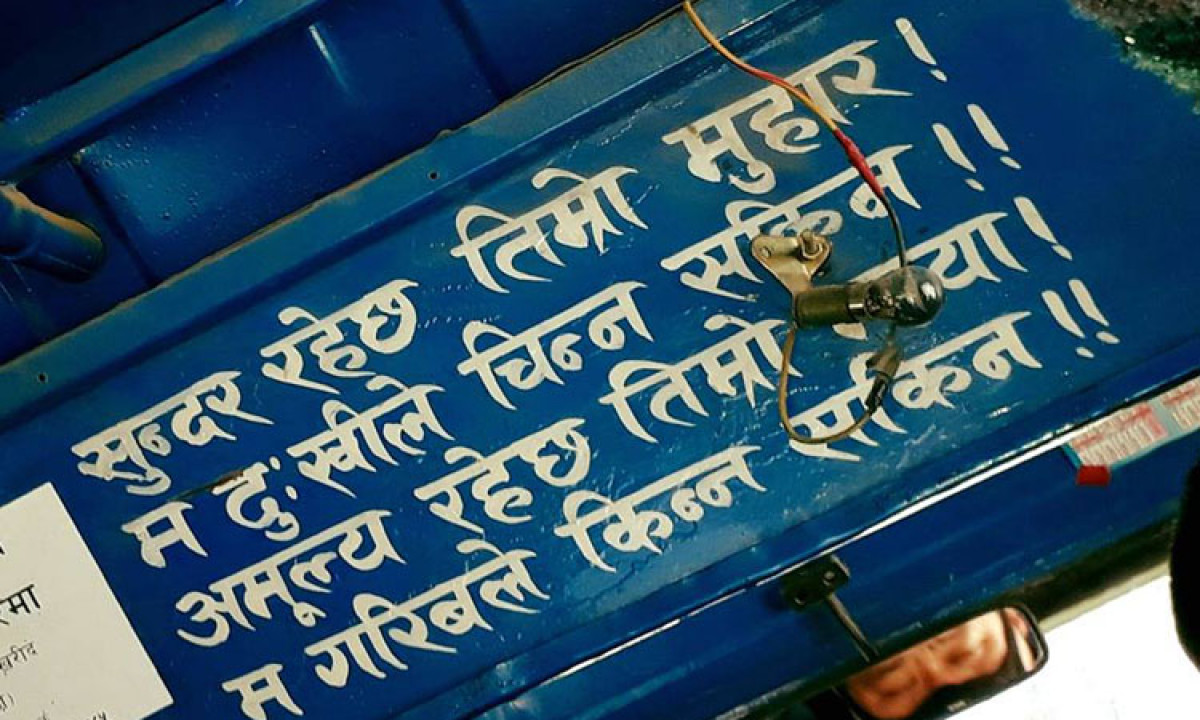 सुन्दर रहेछ तिम्रो मुहार !
म दुःखीले चिन्न सकिन !!
अमूल्य रहेछ तिम्रो !
म गरिबले किन्न सकिन !!